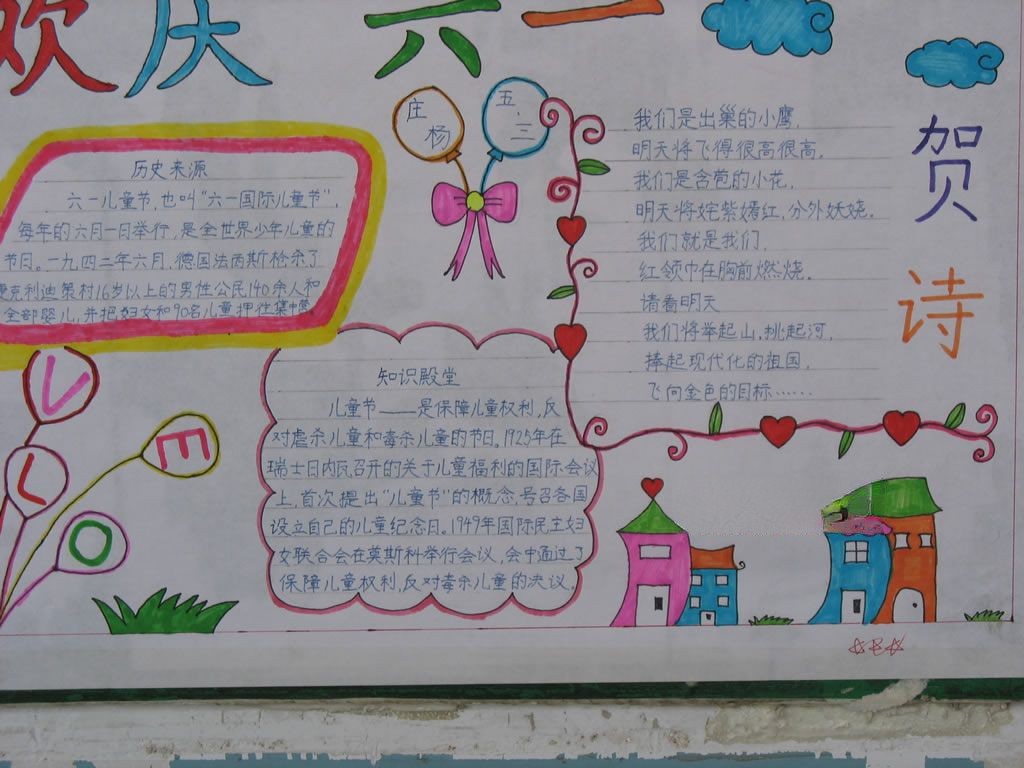 欢庆六一
庄
杨
五.三
历史来源
六一儿童节,也叫“六一国际儿童节”,
每年的六月一日举行,是全世界少年儿童的
节日。一九四二年六月,德国法西斯枪杀了
捷克利迪策村16岁以上的男性公民140余人和
全部婴儿,并把妇女和90名儿童押往集中营
知识殿堂
儿童节——是保障儿童权利,反
对虐杀儿童和毒杀儿童的节日。1925年在
瑞士日内瓦召开的关于儿童福利的国际会议
上,首次提出“儿童节”的概念,号召各国
设立自己的儿童纪念日。1949年国际民主妇
女联合会在莫斯科举行会议,会中通过了
保障儿童权利,反对毒杀儿童的决议。
我们是出巢的小鹰,
明天将飞得很高很高,
我们是含苞的小花,
明天将姹紫嫣红,分外妖娆。
我们就是我们,
红领巾在胸前燃烧。
请看明天
我们将举起山,挑起河,
捧起现代化的祖国,
飞向金色的目标……
贺
诗
L
O
V
E